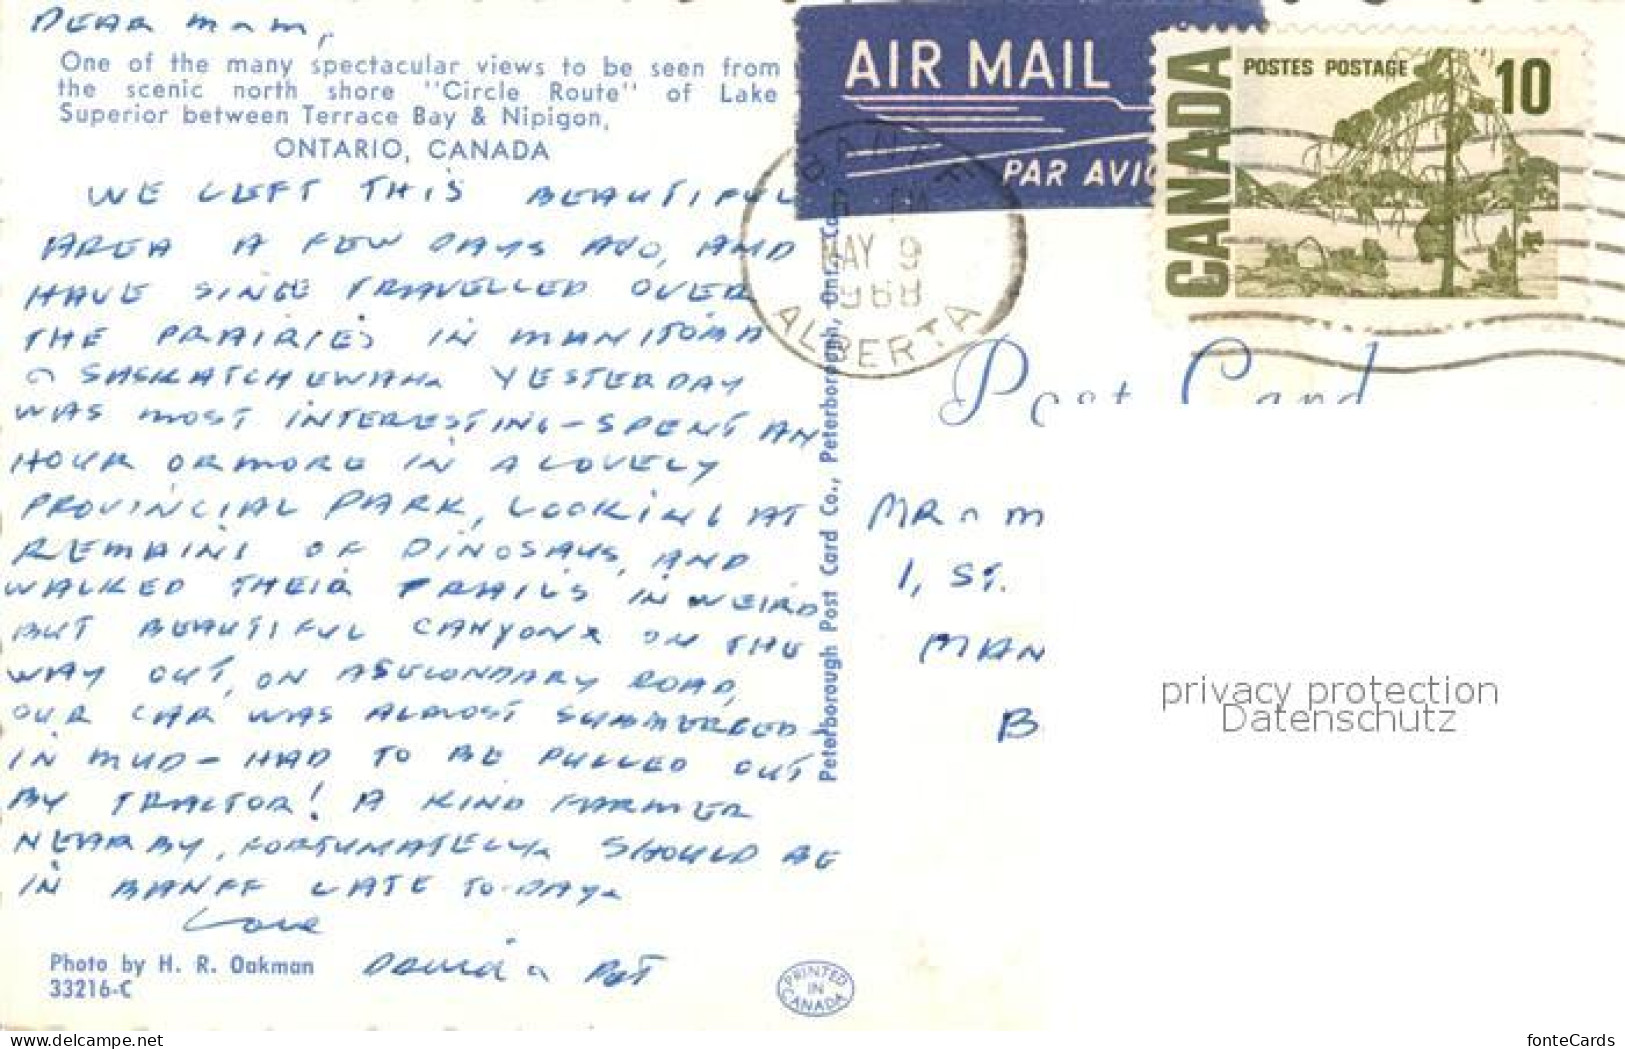 DEAR MAM,
One of the many spectacular views to be seen from
the scenic north shore "Circle Route" of Lake
Superior between Terrace Bay & Nipigon,
ONTARIO, CANADA
WE LEFT THIS BEAUTIFUL
AREA A FEW DAYS AGO, AND
HAVE SINCE TRAVELLED OVER
THE PRAIRIES IN MANITOBA
& SASKATCHEWAN. YESTERDAY
WAS MOST INTERESTING - SPENT AN
HOUR OR MORE IN A LOVELY
PROVINCIAL PARK, LOOKING AT
REMAINS OF DINOSAUS, AND
WALKED THEIR TRAILS IN WEIRD
BUT BEAUTIFUL CANYONS. ON THE
WAY OUT, ON A SECONDARY ROAD,
OUR CAR WAS ALMOST SUBMERGED
IN MUD - HAD TO BE PULLED OUT
BY TRACTOR! A KIND FARMER
NEARBY, FORTUNATELY. SHOULD BE
IN BANFF LATE TO-DAY.
Love
David & Pat
Photo by H. R. Oakman
33216-C
Peterborough Post Card Co., Peterborough, Ont., Ca
PRINTED
IN
CANADA
AIR MAIL
PAR AVIO
CANADA
POSTES POSTAGE
10
BANFF
PM
MAY 9
1968
ALBERTA
Post Card
MR & M
1, ST.
MAN
B
privacy protection
Datenschutz
www.delcampe.net
fonteCards